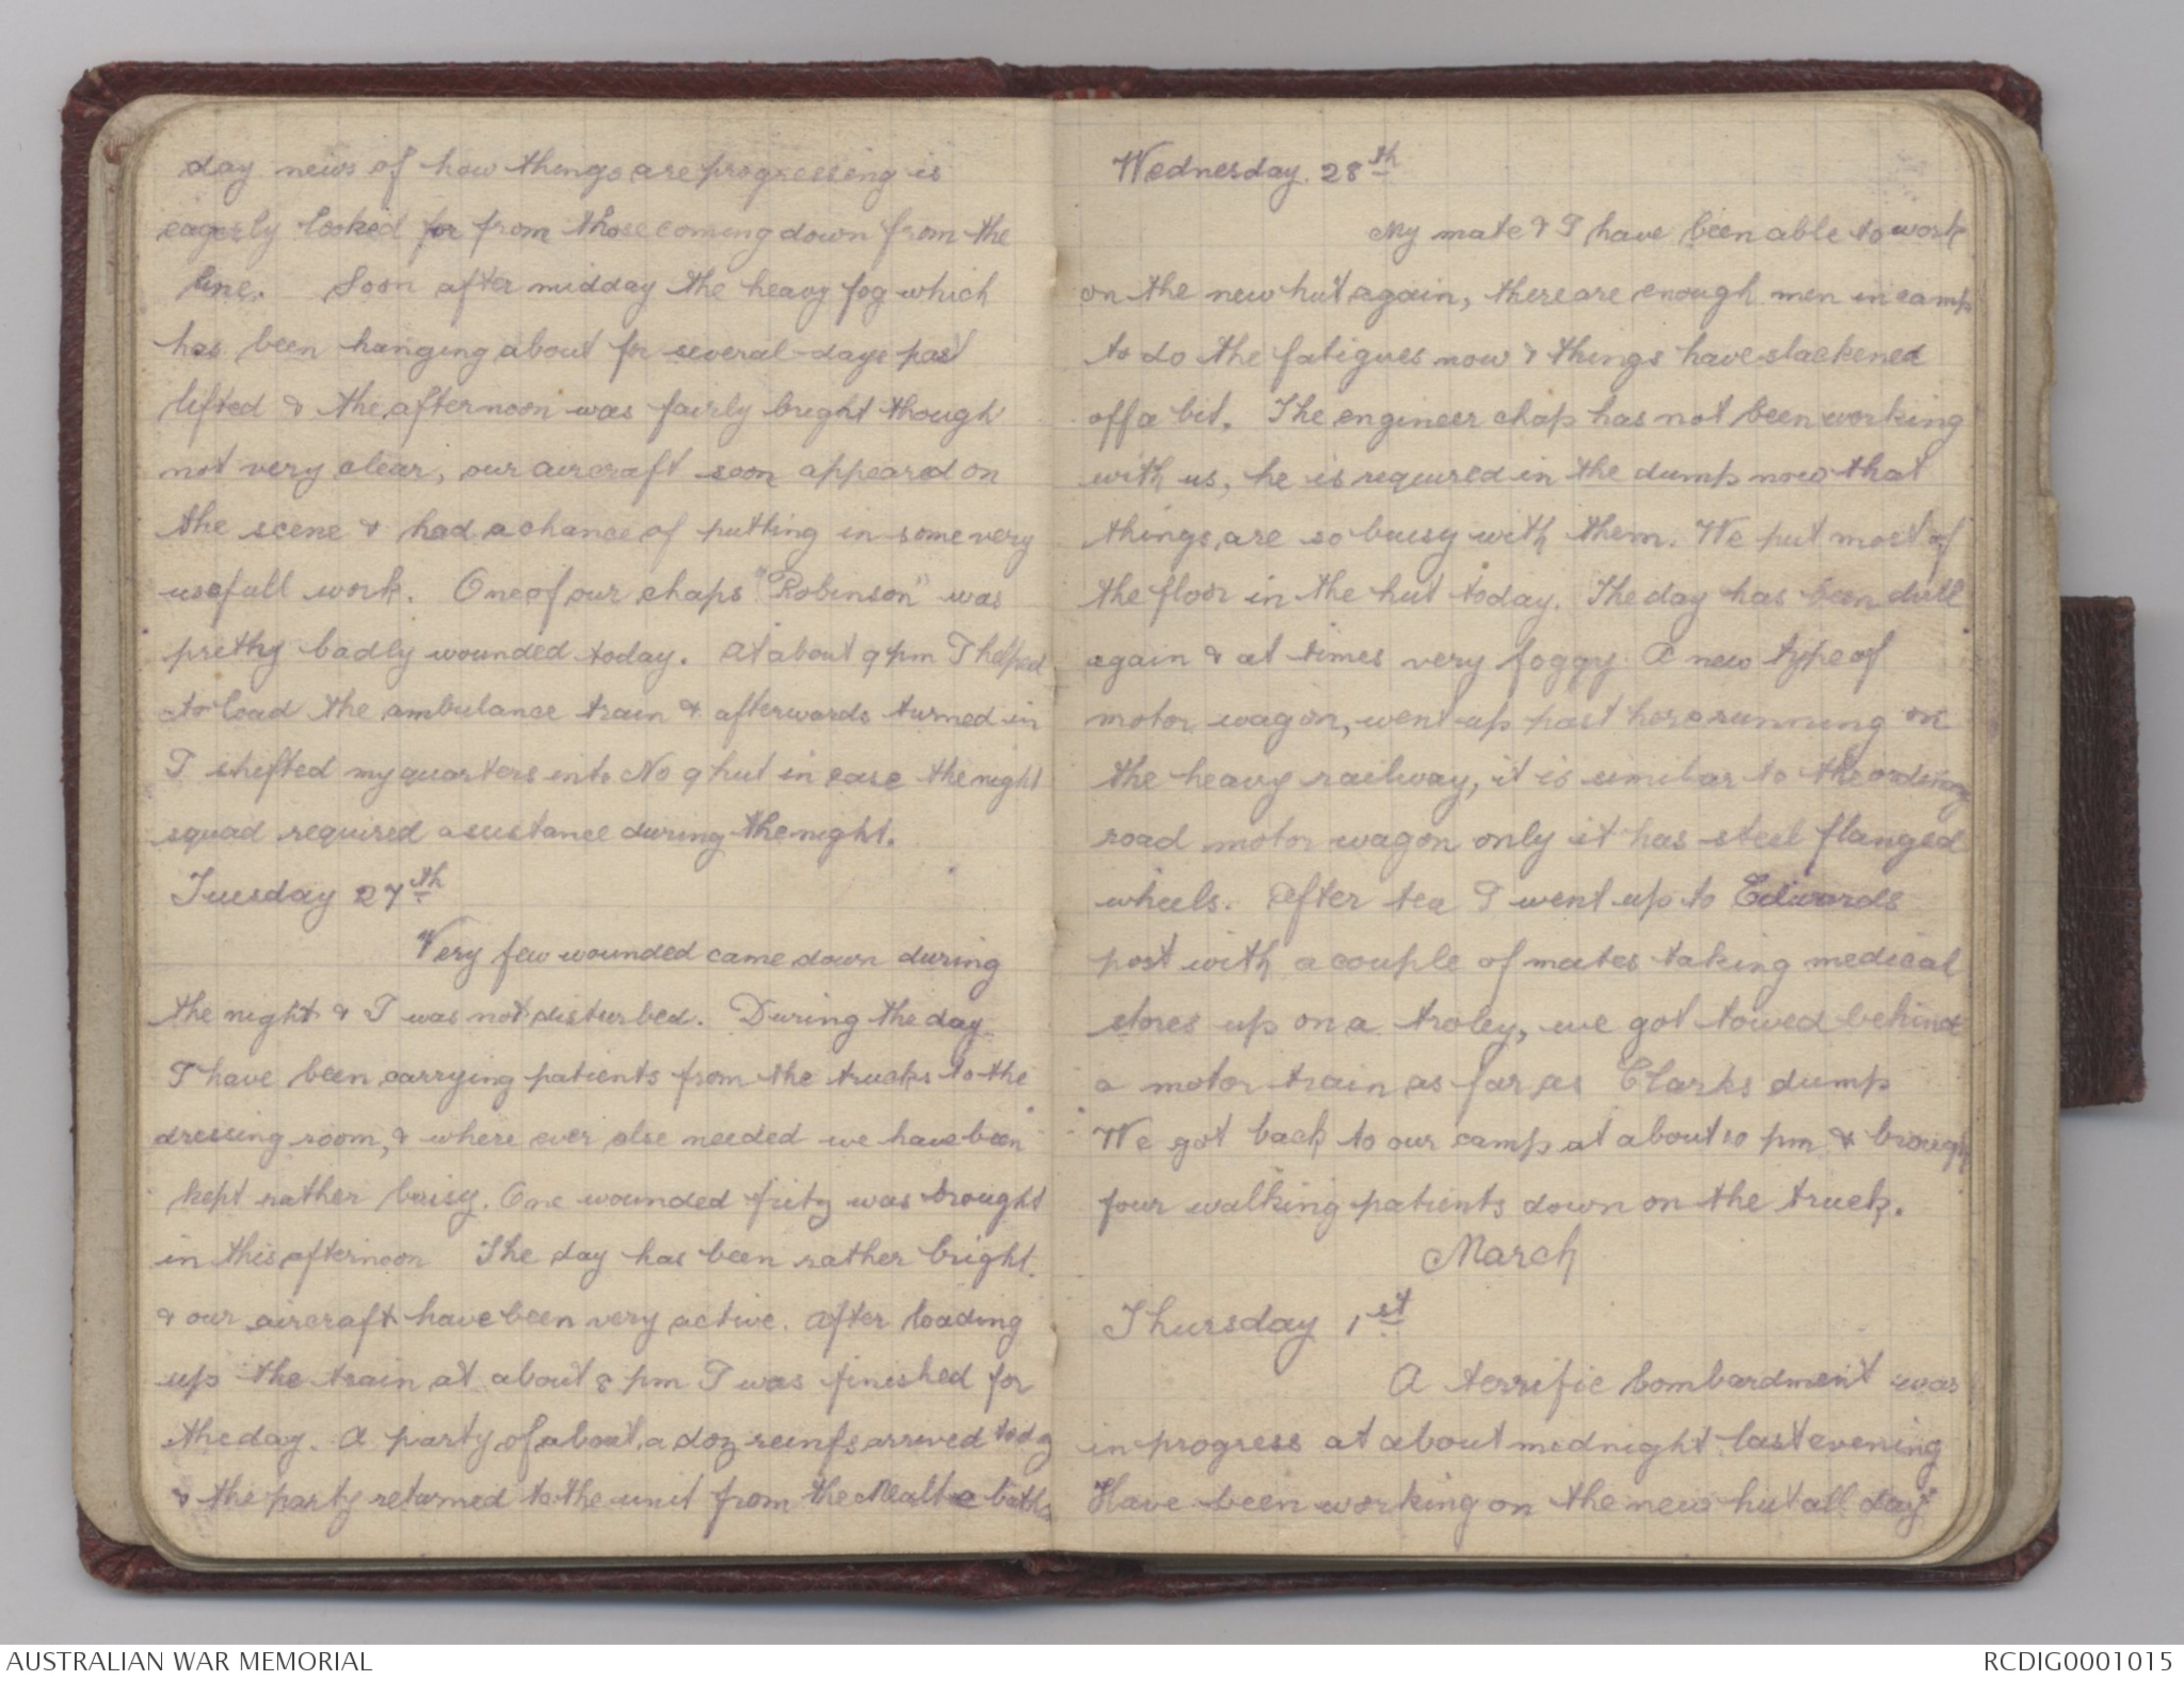 day news of how things are progressing is
eagerly looked for from those coming down from the
line. Soon after midday the heavy fog which
has been hanging about for several days past
lifted & the afternoon was fairly bright though
not very clear, our aircraft soon appeared on
the scene & had a chance of putting in some very
usefull work. One of our chaps "Robinson" was
pretty badly wounded today. At about 9 pm I helped
to load the ambulance train & afterwards turned in
I shifted my quarters into No 9 hut in case the night
squad required assistance during the night.
Tuesday 27th
Very few wounded came down during
the night & I was not disturbed. During the day
I have been carrying patients from the trucks to the
dressing room, & where ever else needed we have been
kept rather buisy. One wounded fritz was brought
in this afternoon The day has been rather bright
& our aircraft have been very active. After loading
up the train at about 8 pm I was finished for
the day. A party of about a doz reinfs arrived today
& the party returned to the unit from the Mealte baths
Wednesday. 28th
My mate & I have been able to work
on the new hut again, there are enough men in camp
to do the fatigues now & things have slackened
off a bit. The engineer chap has not been working
with us, he is required in the dump now that
things are so buisy with them. We put most of
the floor in the hut today. The day has been dull
again & at times very foggy. A new type of
motor wagon, went up past here running on
the heavy railway, it is similar to the ordinary
road motor wagon only it has steel flanged
wheels. After tea I went up to Edwards
post with a couple of mates taking medical
stores up on a troley, we got towed behind
a motor train as far as Clarks dump
We got back to our camp at about 10 pm & brough
four walking patients down on the truck.
March
Thursday 1st
A terrific bombardment was
in progress at about midnight last evening
Have been working on the new hut all day
AUSTRALIAN WAR MEMORIAL
RCDIG0001015